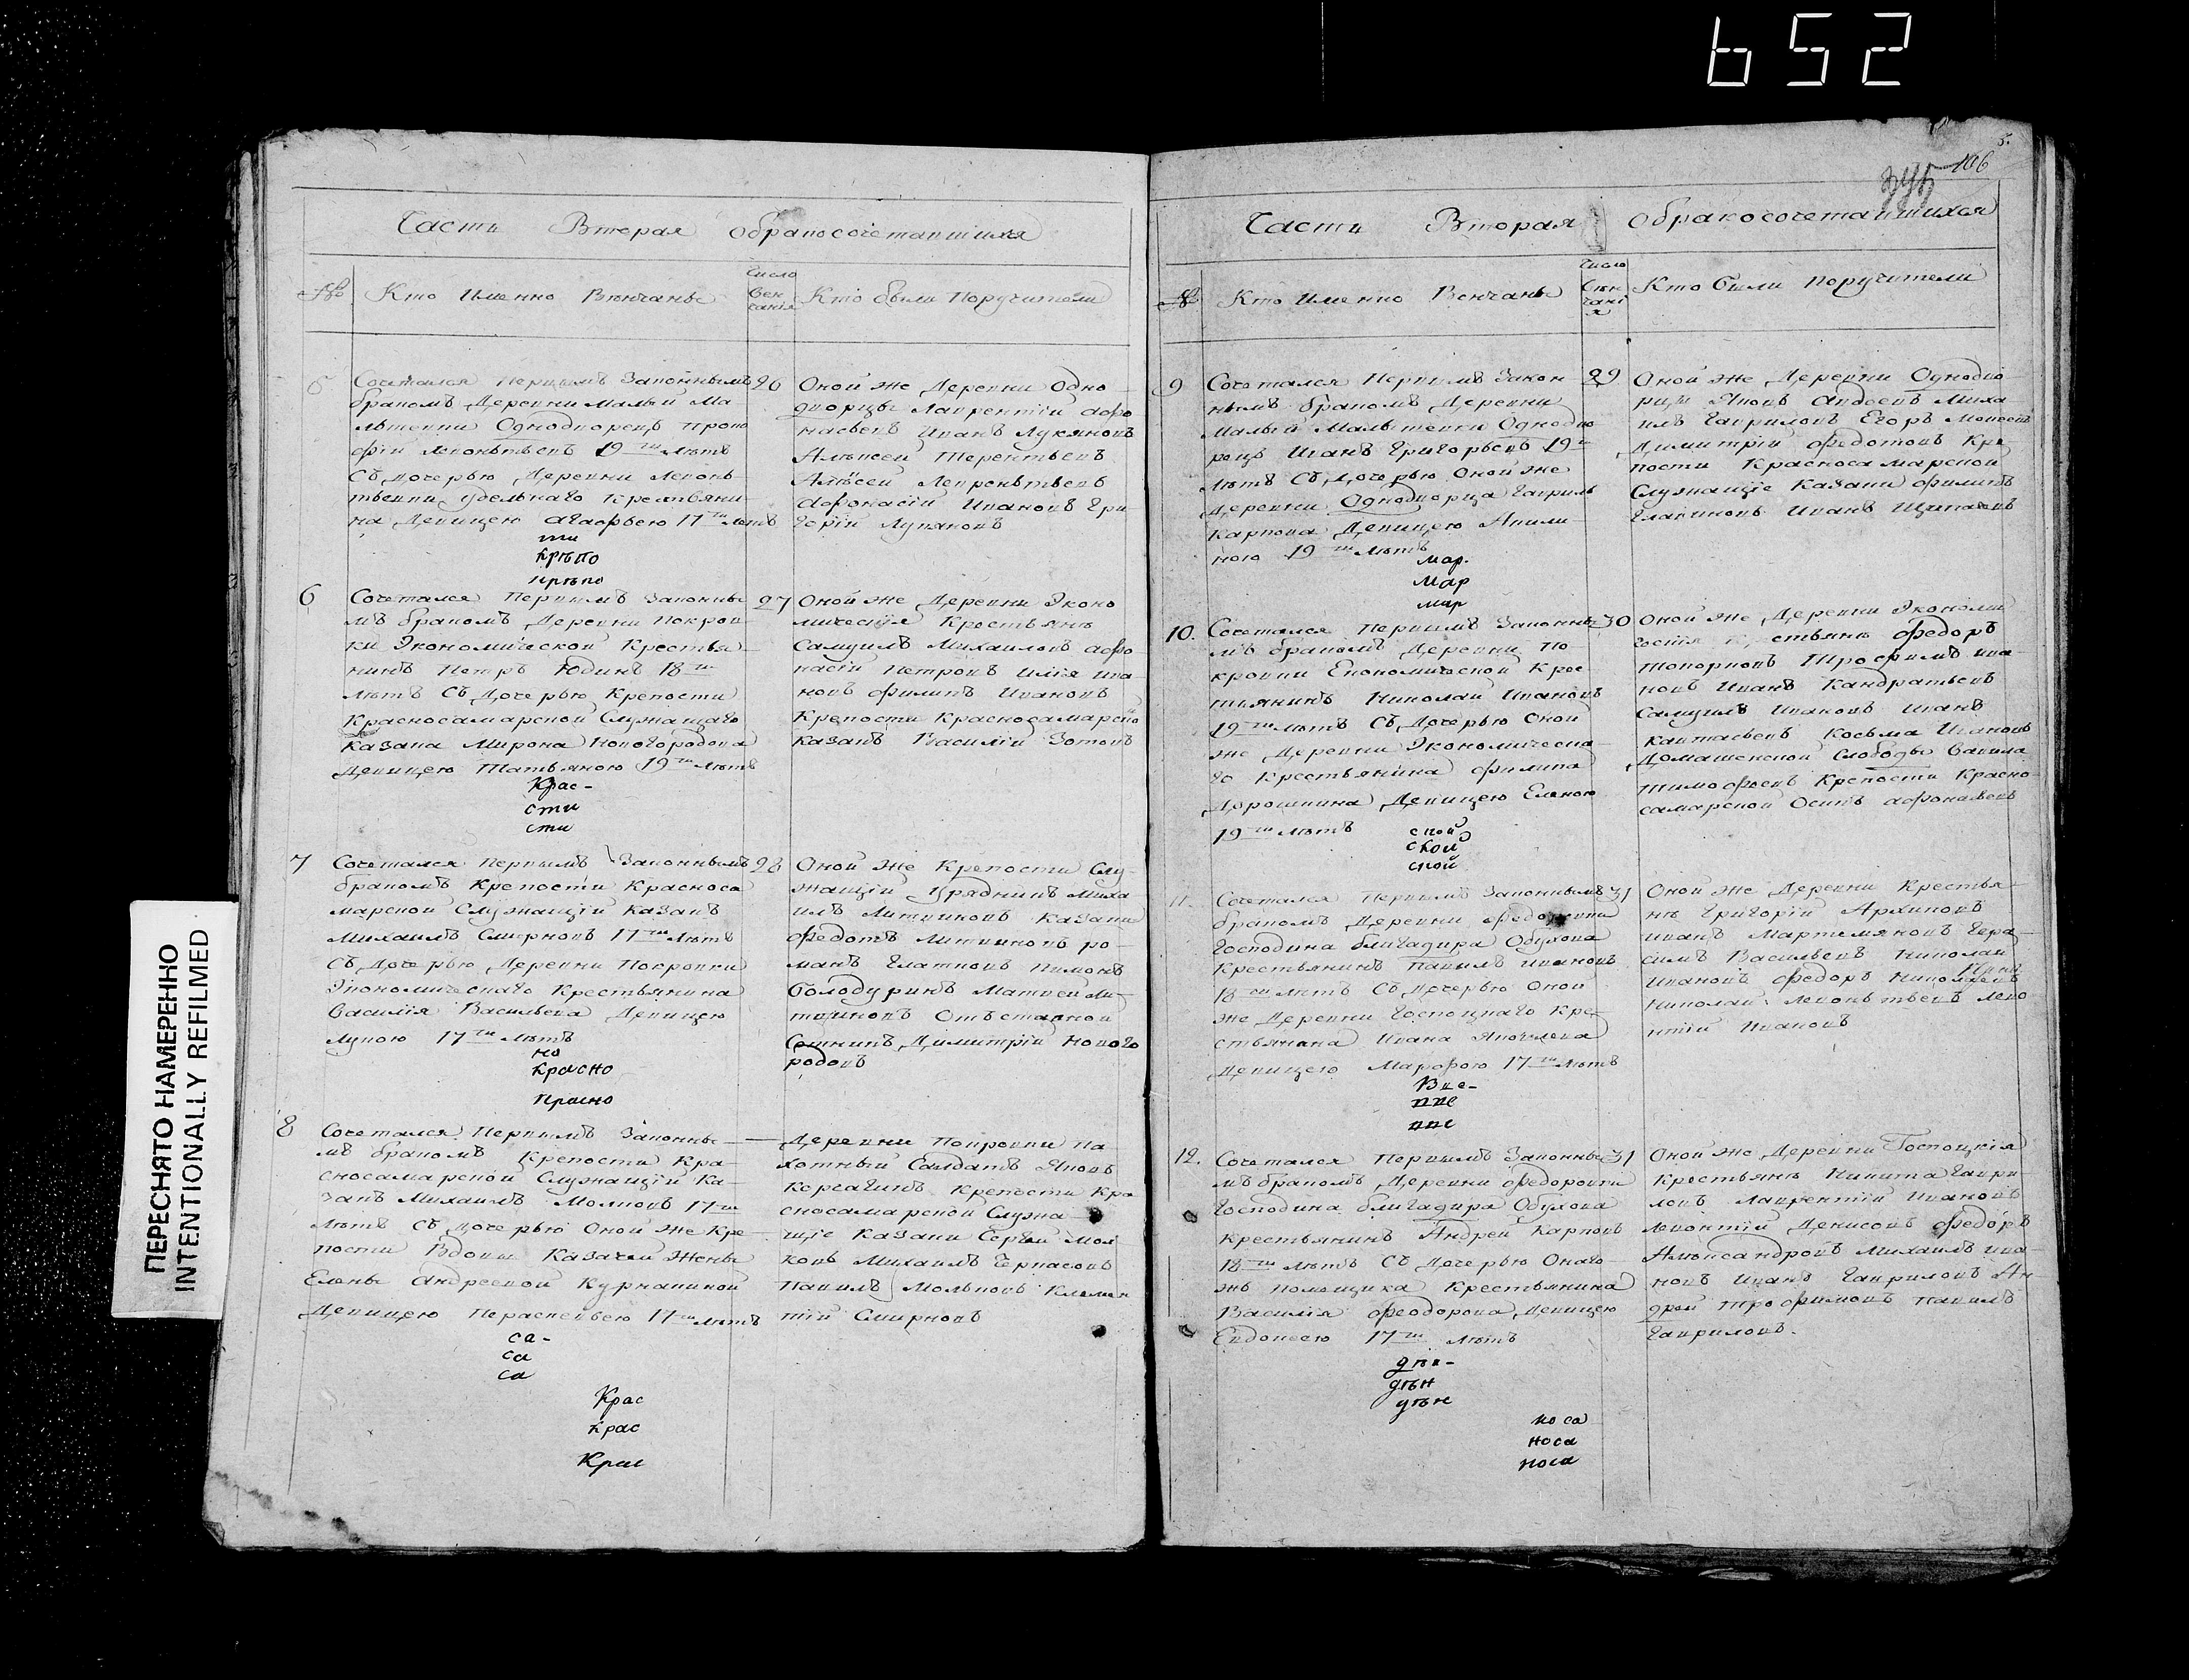 652
ПЕРЕСНЯТО НАМЕРЕННО
INTENTIONALLY REFILMED
Часть Вторая о бракосочетавшихся
№ Кто Именно Венчаны
Число Вен чания
Кто были Поручители
5
Сочетался Первымъ Законнымъ
бракомъ Деревни Малыи Ма
лышевки Однодворецъ Проко
фіи Леонтьевъ 19ти Летъ
Съ дочерью Деревни Леонь
тьевки удельнаго Крестьяни
на Девицею Агафьею 17ти летъ
26
Оной же Деревни Одно
дворцы Лаврентіи Афо
насьевъ Иванъ Лукяновъ
Алексеи Терентьевъ
Афонасіи Ивановъ Гри
горіи Лукяновъ
ти
крѣпо
крѣпо
6
Сочетался Первымъ Законны
мъ бракомъ Деревни Покров
ки Экономической Крестья
нинъ Петръ Юдинъ 18ти
летъ Съ Дочерью Крепости
Красносамарской Служащаго
Казака Мирона Новогородова
Девицею Татьяною 19ти летъ
27
Оной же Деревни Эконо
мическія Крестьянъ
Самуилъ Михаиловъ Афо
насіи Петровъ Илія Ива
новъ Филипъ Ивановъ
Крепости Красносамарско
Казакъ Василіи Зотовъ
Крас-
сти
сти
7
Сочетался Первымъ Законнымъ
бракомъ Крепости Красноса
марской Служащіи Казакъ
Михаилъ Смирновъ 17ти летъ
Съ Дочерью Деревни Покровки
Экономическаго Крестьянина
Василія Васильева Девицею
Лукою 17ти летъ
28
Оной же Крепости Слу
жащіи Урядникъ Миха
илъ Литвиновъ Казаки
Федотъ Литвиновъ Ро-
манъ Пимонъ
Болодуринъ Матвеи Ли-
твиновъ Отъставной
Сотникъ Димитріи Нового
родовъ
но
красно
красно
8
Сочетался Первымъ Законны
мъ бракомъ Крепости Кра-
сносамарской Служащіи Ка-
закъ Михаилъ Молновъ 17ти
летъ Съ дочерью Оной же Кре
пости Вдовы Казачеи Жены
Елены Андреевой Курнапиной
Девицею Параскевьею 17ти летъ
Деревни Покровки па
хотныи Салдатъ Яковъ
Корсагинъ Крепости Кра
сносамарской Служа
щіе Казаки Сергеи Мол
ковъ Михаилъ Черкасовъ
Павилъ Мольковъ Клемен
тіи Смирновъ
са-
са
са
Крас
крас
Крас
5.
106
Часть Вторая о бракосочетавшихся
№ Кто Именно Венчаны
Число Вен чані я
Кто были Поручители
9
Сочетался Первымъ Закон
нымъ бракомъ Деревни
Малыи Малышевки Однодво
рецъ Иванъ Григорьевъ 19ти
летъ Съ Дочерью Оной же
Деревни Однодворца Гаврилы
Карпова Девицею Акили-
ною 19ти летъ
29
Оной же Деревни Однодво
рцы Яковъ Авдеевъ Миха
илъ Гавриловъ Егоръ Моисеевъ
Димитріи Федотовъ Кре
пости Красносамарской
Служащіе Казаки Филипъ
Иванъ
мар.
мар
мар
10.
Сочетался Первымъ Законны
мъ бракомъ Деревни По
кровки Економической Крес
тьянинъ Николаи Ивановъ
19ти летъ Съ Дочерью Оной
же Деревни Экономическа
го Крестьянина Филипа
Дорошкина Девицею Еленою
19ти летъ
30
Оной же Деревни Экономи
Федоръ
Топорновъ Трофимъ Ива-
новъ Иванъ Кандратьевъ
Самуилъ Ивановъ Иванъ
Косьма Ивановъ
Домашенской Слободы Вавила
Тимофеевъ Крепости Красно-
самарской Осипъ Афонасьевъ
ской
ской
ской
11.
Сочетался Первымъ Законнымъ
бракомъ Деревни Федоровки
Господина блигадира Обухова
Крестьянинъ Павилъ Ивановъ
18ти летъ Съ Дочерью Оной
же Деревни Госпоцкаго Кре-
стьянина Ивана Яковлева
Девицею Марфою 17ти летъ
31
Оной же Деревни Крестья-
нъ Григоріи Архиповъ
Иванъ Мартемяновъ Гера-
симъ Васильевъ Николаи
Ивановъ Федоръ
Николаи Леоньтьевъ Лео
нтіи Ивановъ
Вве-
вве
вве
12.
Сочетался Первымъ Законны
мъ бракомъ Деревни Федоровки
Господина блигадира Обухова
Крестьянинъ Андреи Карповъ
18ти летъ Съ Дочерью Онаго-
жъ помещика Крестьянина
Василія Феодорова Девицею
Евдокеею 17ти летъ
31
Оной же Деревни Госпоцкія
Крестьянъ Никита Гаври
ловъ Лаврентіи Ивановъ
Леонтіи Денисовъ Федоръ
Александровъ Михаилъ Ива-
новъ Иванъ Гавриловъ Ан
дреи Трофимовъ Павилъ
Гавриловъ.
дѣн-
дѣн
дѣн
носа
носа
носа